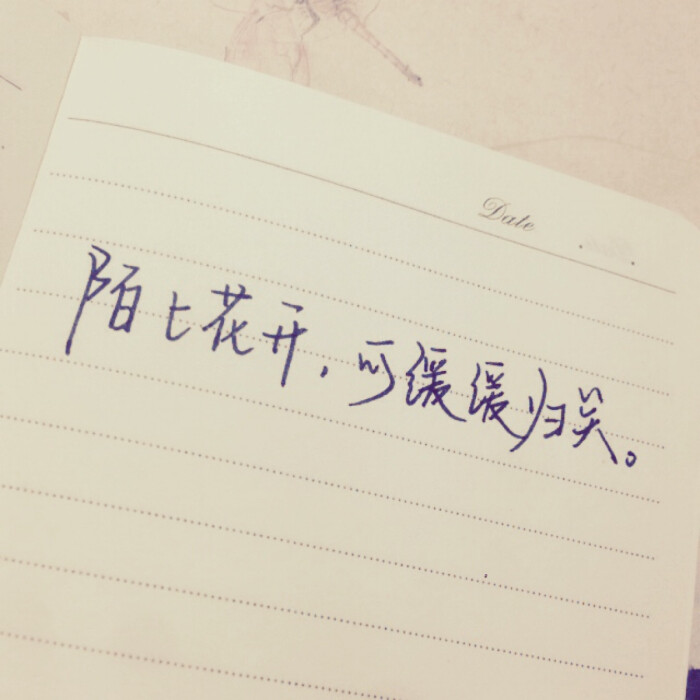 Date
陌上花开，可缓缓归矣。